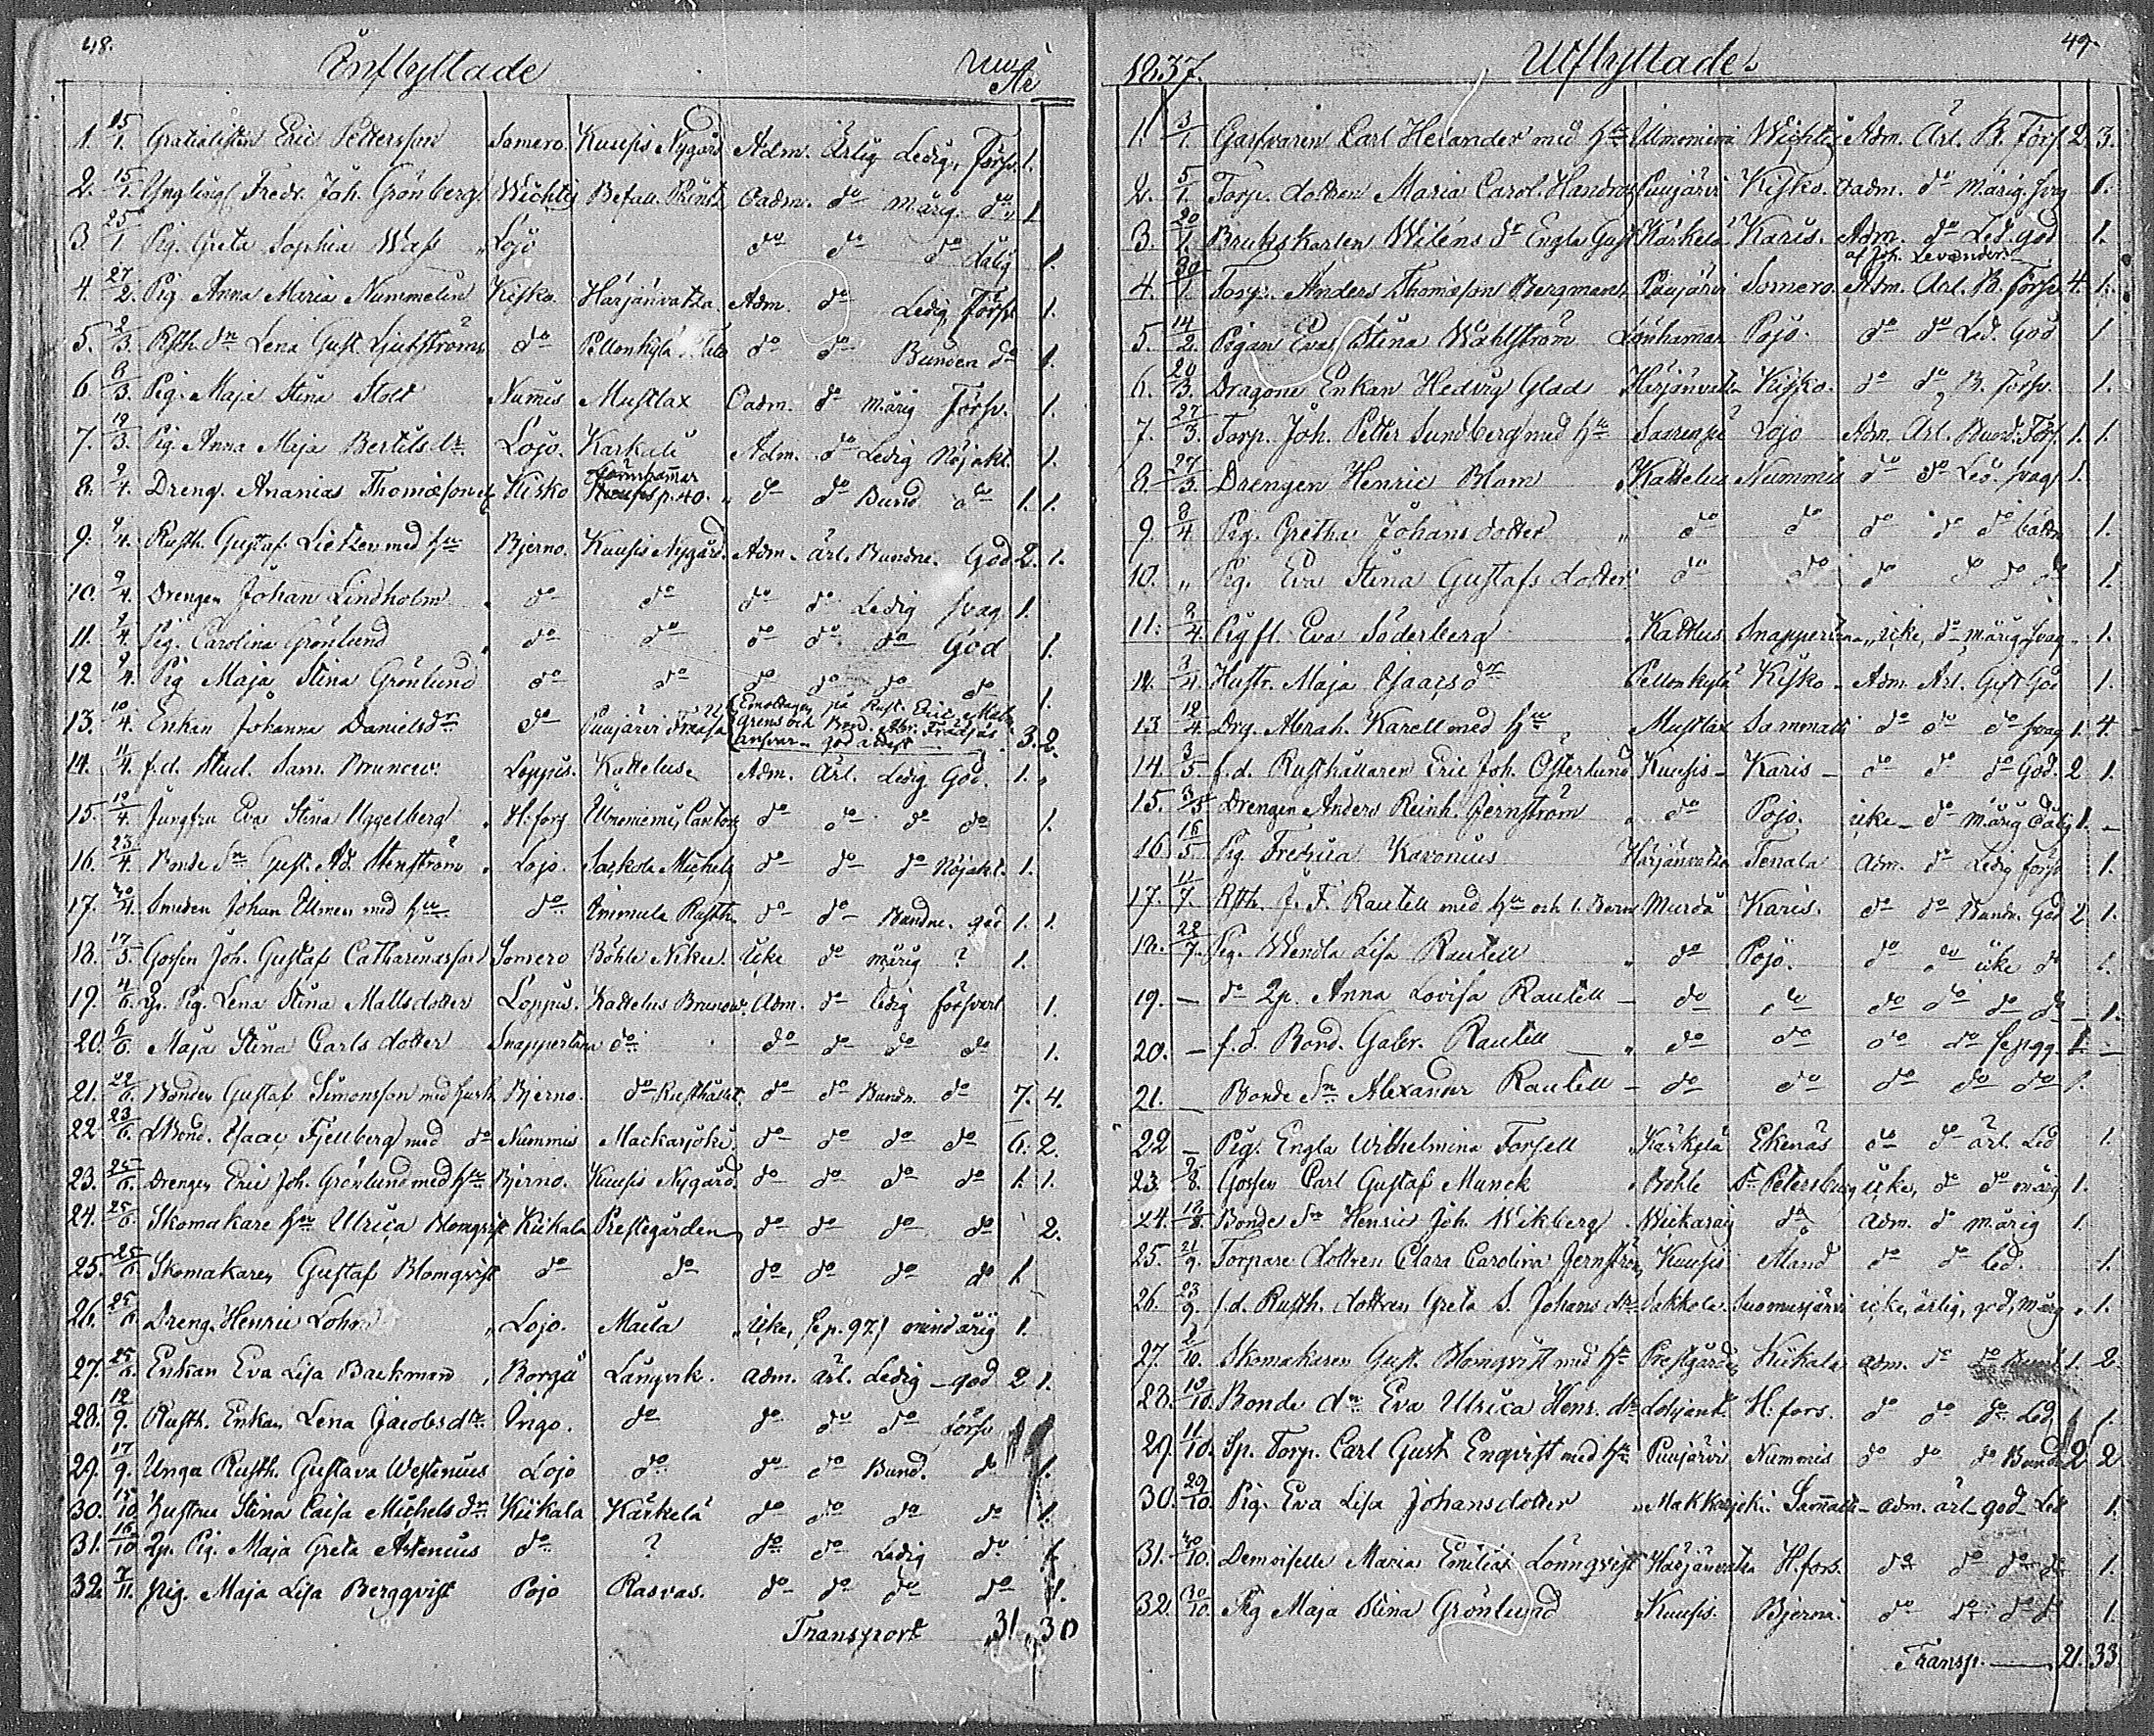 48.
Inflyttade
1. 15/1. Gratialisten Eric Pettersson Somero. Kuusis Nygård Adm. Ärlig Ledig, Försv. 1.
2. 15/1. Ynglingen Fredr. Joh. Grönberg Wichtis Befall. Oadm. do märig. do 1
3. 25/1 Pig. Greta Sophia Wass Lojo do do do dålig 1.
4. 27/2. Pig. Anna Maria Nummelin Kisko. Härjänvatza. Adm. do Ledig, Försv. 1.
5. 2/3. Rsth. dr Lena Gust. Ljufströms do Pellonkylä do do Bunden do 1.
6. 8/3. Pig. Maja Stina Stolt Nummis Mustlax Oadm. do märig Försv. 1.
7. 12/3. Pig. Anna Maja Bertils dr. Lojo. Karkali Adm. do Ledig Nöjakt. 1.
8. 9/4. Dreng. Ananias Thomæson Kisko Lönnhamar p. 40. do do Bund. do 1. 1.
9. 9/4. Rusth. Gustaf Lietzen med hu Bjerno. Kuusis Nygård. Adm. ärl. Bundne. God. 2. 1.
10. 9/4. Drengen Johan Lindholm do do do do Ledig svag 1.
11. 9/4. Pig. Carolina Grönlund do do do do do God 1.
12 9/4. Pig Maja Stina Grönlund do do do do do do 1.
13. 10/4. Enkan Johanna Danielsdr do Puujärvi på Rust. Eric ansvar. 3. 2.
14. 11/4. f.d. Stud. Sam. Brunow. Loppis. Kattelus Adm. Ärl. Ledig. God. 1.
15. 12/4. Jungfru Eva Stina Uggelberg H:fors Cantors do do do do 1.
16. 23/4. Bonde Sn. Gust. Ad. Stenström Lojo. Michels do do do Nöjakt. 1.
17. 30/4. Smeden Johan Ellmen med hu do Immula Rusth. do do Bundne. god 1. 1.
18. 17/5. Gossen Joh. Gustaf Catharinasson Somero Böhle Niku. icke do märig ? 1.
19. 4/6. Pig. Lena Stina Mattsdotter Loppis. Kattelus Brunow. Adm. do ledig försvarl 1.
20. 6/6. Maja Stina Carlsdotter Snappertuna do. do do do do 1.
21. 22/6. Bonden Gustaf Simonsson med hush. Bjerno. do Rusthållet. do do Bundn. do 7. 4.
22 23/6. Bond. Isaac Fjellberg med do Nummis Mackarjoki do do do do 6. 2.
23. 25/6. Drengen Eric Joh. Grönlund med hu. Bjerno. Kuusis Nygård. do do do do 1. 1.
24. 25/6. Skomakare hu Ulrica Blomqvist Kiikala Prestegården do do do do 2.
25. 25/6. Skomakaren Gustaf Blomqvist do do do do do do 1.
26. 25/6. Dreng. Henric Lohm Lojo. Maila icke, (se p. 97.) mindårig 1.
27. 25/8. Enkan Eva Lisa Backman Borgå Långvik. adm. ärl. Ledig god 2 1.
28. 12/9. Rusth. Enkan Lena Jacobsdtr. Ingo. do do do do Försv
29. 17/9. Unga Rusth. Gustava Westenius Lojo do do do Bund. do 1.
30. 15/10. Hustrun Stina Caisa Michelsdr. Kiikala Kärkelä do do do do 1.
31. 16/10 Pig. Maja Greta Astenius do ? do do Ledig do 1.
32. 7/11. Pig. Maja Lisa Bergqvist Pojo Rasvas. do do do do 1.
Transport 31, 30
1837. Utflyttade. 49.
1. 3/1. Gasfvaren Carl Helander med hu Wichtis Adm. Ärl. B. Förs. 2. 3.
2. 5/1. Torp. dottren Maria Carol. Puujärvi Kisko. oadm. do märig. svag 1.
3. 20/1. Brukskarlen Wiléns dr Engla Gust. Kärkelä Karis. Adm. do Led. god 1.
4. 30/1. Torp. Anders Thomæson Bergman af Joh. Levander Puujärvi Somero. Adm. Ärl. B. försv. 4. 1.
5. 14/2. Pigan Eva Stina Wahlström Lönhamar Pojo. do do Led. God 1
6. 20/3. Dragone Enkan Hedvig Glad Härjänvatza Kisko. do do B. Försv. 1.
7. 27/3. Torp. Joh. Petter Sundberg med hu Lojo Adm. Ärl. Bund. Förs. 1. 1.
8. 27/3. Drengen Henric Blom Kattelus Nummis do do Led. svag 1.
9. 8/4. Pig. Gretha Johansdotter do do do do do bättre 1.
10. " Pig. Eva Stina Gustafsdotter do do do do do do 1.
11. 9/4. Pig fl. Eva Söderberg Kattlus Snappertuna icke, do märig svag 1.
12. 3/4. Hustr. Maja Isaacsdr Pellonkylä Kisko Adm. Ärl. Gift God 1.
13 12/4. Drg. Abrah. Karell med hu Mustlax Sammatti do do do svag 1. 4.
14. 3/5. f.d. Rusthållaren Eric Joh. Österlund Kuusis Karis do do do God. 2 1.
15. 3/5. Drengen Anders Reinh. Jernström do Pojo. icke do märig dålig 1.
16 16/5. Pig. Fredrica Karonius Härjänvatza Tenala adm. do Ledig försv 1.
17. 11/7. Rsth. J. F. Rautell med hu och 1. Barn Murdå Karis. do do Bundn. God 2 1.
18. 22/7. Pig. Wendla Lisa Rautell do Pojo. do do icke do 1.
19. do Anna Lovisa Rautell do do do do do do 1.
20. f.d. Bond. Gabr. Rautell do do do do 1.
21. Bonde Sn. Alexander Rautell do do do do do 1.
22 Pig. Engla Wilhelmina Forsell Kärkelä Ekenäs do do ärl. Led 1.
23. 2/8. Gossen Carl Gustaf Munck Bohle St. Petersburg icke, do do märg 1.
24. 16/8. Bonde Sn Henric Joh. Wikberg do adm. do märig 1.
25. 21/9. Torpare dottren Clara Carolina Jernström Kuusis Åland do do led. 1.
26. 23/9. f.d. Rusth. dottren Greta S. Johansdr. Sakkola. Suomusjärvi icke, ärlig, god, märg 1.
27. 2/10. Skomakaren Gust. Blomqvist med hu Prestgården Kiikala adm. do do Bund 1. 2.
28. 10/10. Bonde dr Eva Ulrica Henr. dr Lohjant. H:fors. do do do Led 1.
29. 11/10. Sp. Torp. Carl Gust. Enqvist med hu Puujärvi Nummis do do do Bund 2 2
30. 29/10. Pig. Eva Lisa Johansdotter Makkarjoki. Sammatti adm. ärl god Led 1.
31. 30/10. Demoiselle Maria Emilia Lönnqvist Härjänvatza H.fors. do do do do 1.
32. 30/10. Pig Maja Stina Grönlund Kuusis. Bjerno. do do do do 1.
Transp. 21. 33